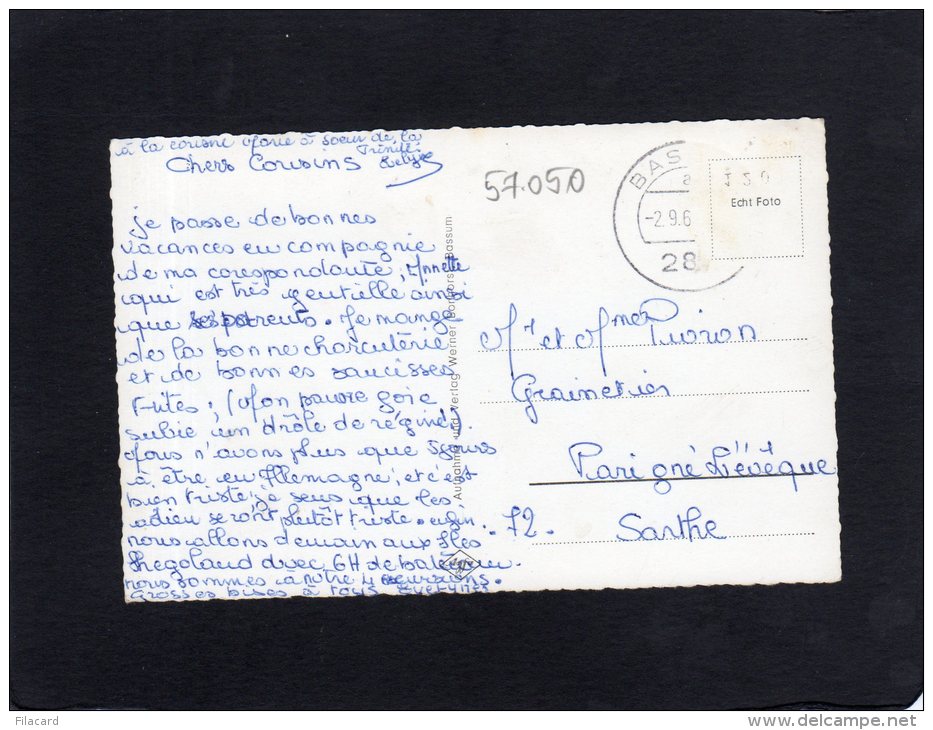 à la cousine Marie à soeur de la
Trinité
Chers Cousins
je passe de bonnes
vacances en compagnie
de ma corespondante, Annette
qui est très gentielle ainsi
que ses parents. Je mange
de la bonne charcuterie
et de bonnes saucisses
Frites; (Mon pauvre foie
subie un drôle de régime).
Nous n'avons plus que 5 jours
à être en Allemagne; et c'est
bien triste, je sens que les
adieu seront plutôt triste.
nous allons demain aux Iles
Hegoland avec 6H de bateau.
nous sommes
Grosses bises à tous
57.050
BAS
a
-2.9.6
28
Echt Foto
Aufnahme und Verlag Werner Bassum
Mr et Mme Pivron
Graineties
Parigné L'évêque
72. Sarthe
Filacard
www.delcampe.net